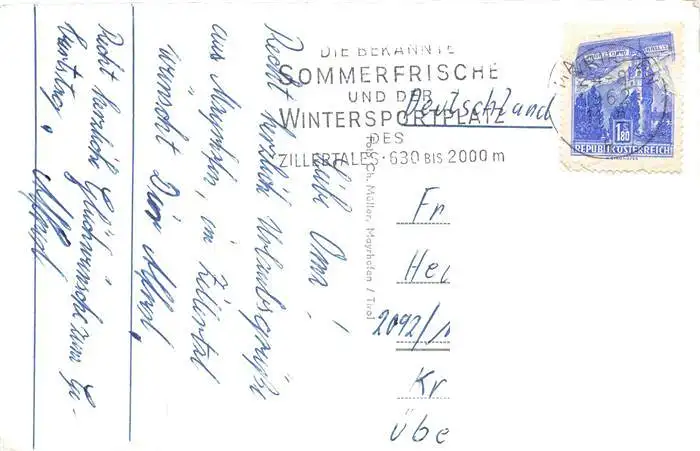 Liebe Oma!
Recht herzliche Urlaubsgrüße
aus Mayrhofen, im Zillertal
wünscht Dir Alfred,
Recht herzliche Glückwünsche zum Ge-
burtstag, Alfred
DIE BEKANNTE
SOMMERFRISCHE
UND DER
WINTERSPORTPLATZ
DES
ZILLERTALES · 630 BIS 2000 m
Deutschland
Fr
He
2092/1
Kr
Übe
Fot. Ch. Müller, Mayrhofen / Tirol
1.80
REPUBLIK ÖSTERREICH